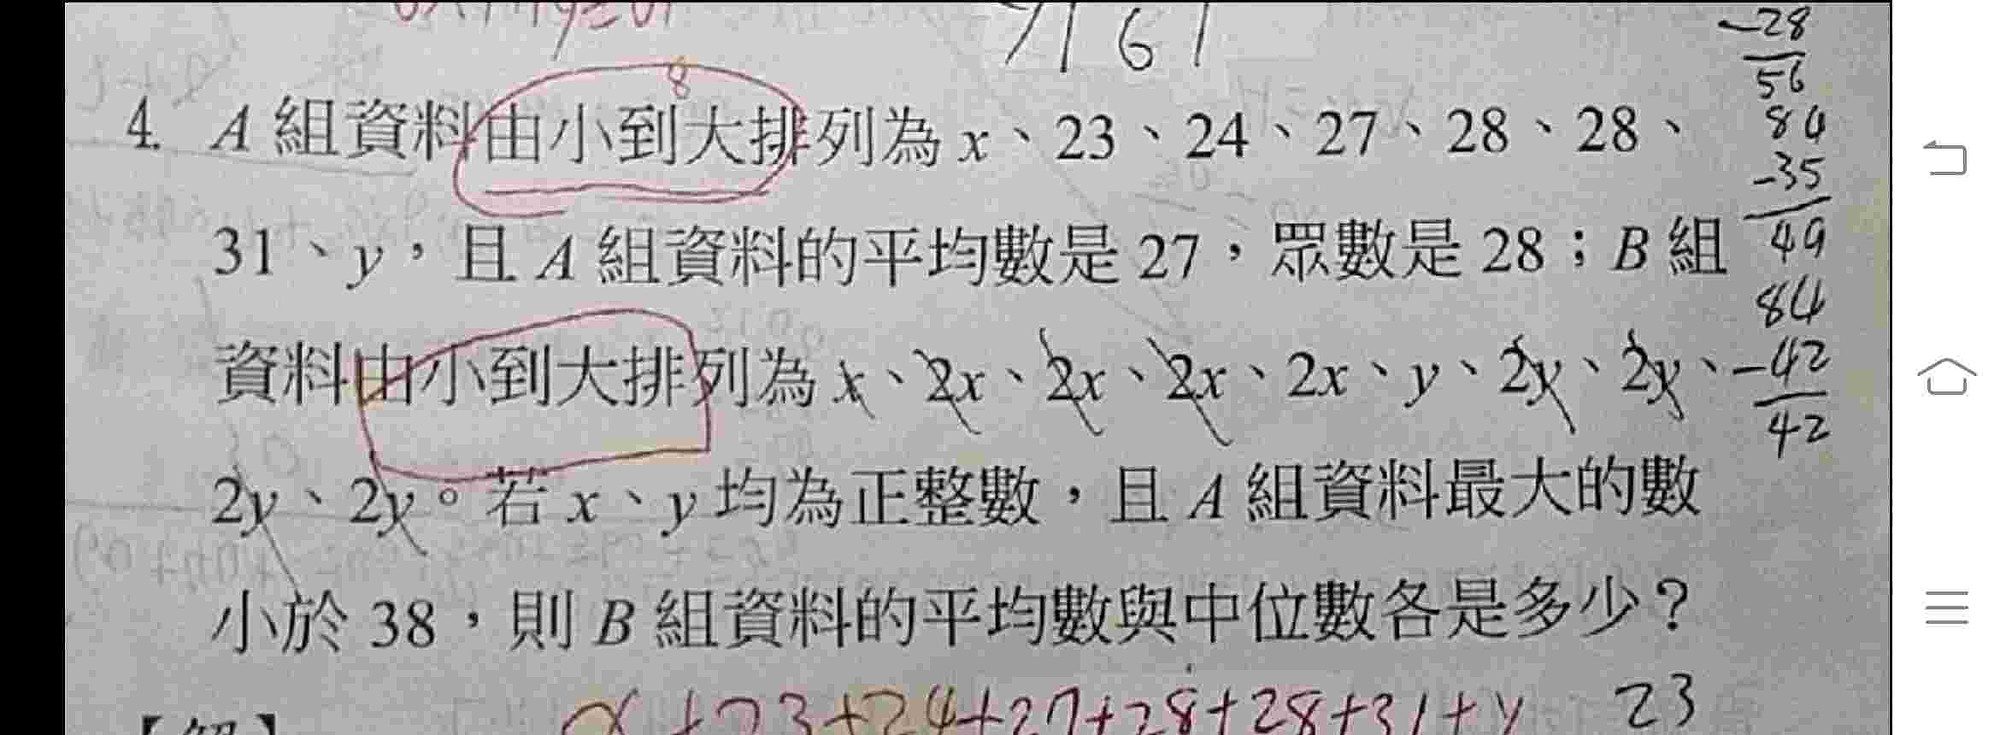 -28
7161
56
8
4. A 組資料由小到大排列為 x、23、24、27、28、28、
84
-35
31、y，且 A 組資料的平均數是 27，眾數是 28；B 組
49
84
資料由小到大排列為 x、2x、2x、2x、2x、y、2y、2y、
-42
42
2y、2y。若 x、y 均為正整數，且 A 組資料最大的數
小於 38，則 B 組資料的平均數與中位數各是多少？
x+23+24+27+28+28+31+y 23